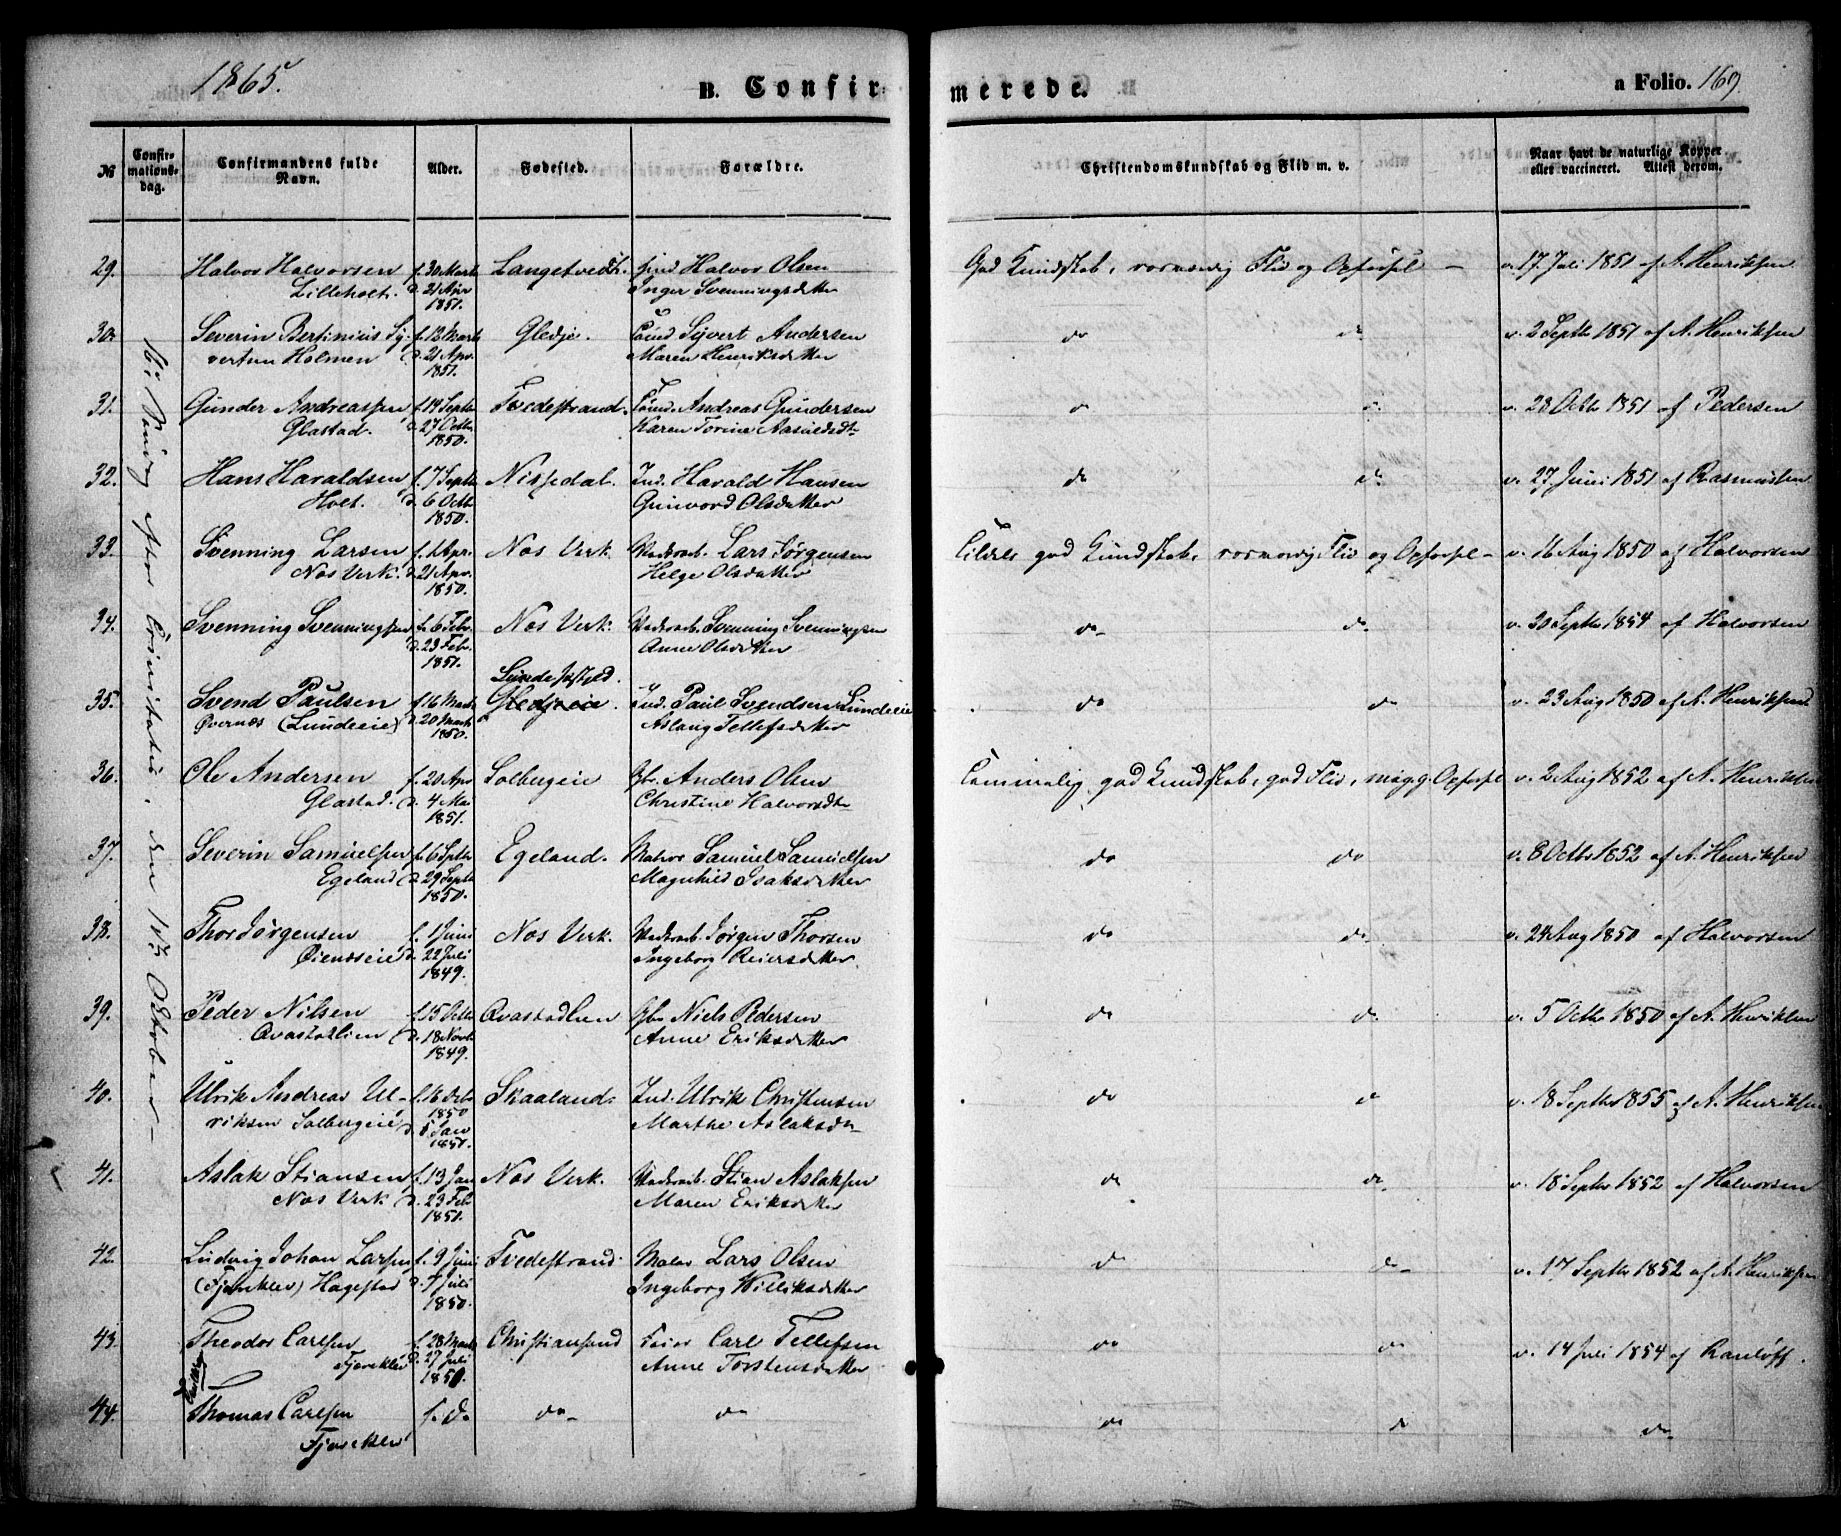 1865.
B. Confirmerede.
a Folio. 169.
№
Confirmationsdag.
Confirmandens fulde Navn.
Alder.
Fødested.
Forældre.
Christendomskundskab og Flid m. v.
Naar havt de naturlige Kopper eller vaccineret. Attest derom.
den 1ste October
29. Halvor Halvorsen f. 30 Marts Langetvedt. Halvor Olsen God Kundskab, Flid og Opførsel v. 17 Juli 1851 af A. Henriksen
Lilleholt. d. 21 Apr Inger Svenningsdatter
1851.
30. Severin Bertinius Sy- f. 13 Marts Gledje. Syvert Andersen do do v. 2 Septbr 1851 af A. Henriksen
vertsen Holmen d. 21 Apr. Maren Henriksdatter
1851.
31. Gunder Andreassen f. 14 Septb Tvedestrand. Andreas Gundersen do do v. 28 Octbr 1851 af Pedersen
Glastad. d. 27 Octbr Karen Torine
1850.
32. Hans Haraldsen f. 7 Septb Nissedal. Ind. Harald Hansen do do v. 27 Juni 1851 af Rasmussen
Holt. d. 6 Octb Gunvord Olsdatter
1850.
33. Svenning Larsen f. 1 Apr. Nas Verk. Lars Jørgensen god Kundskab, Flid og Opførsel v. 16 Aug 1850 af Halvorsen
Nas Verk. d. 21 Apr. Helge Olsdatter
1850.
34. Svenning Svenningsen f. 6 Febr. Nas Verk. Svenning Svenningsen do do v. 30 Septbr 1854 af Halvorsen
d. 23 Febr. Anne Olsdatter
1851.
35. Svend Paulsen f. 16 Marts Gledjeeie. Ind. Paul Svendsen Lundeeie do do v. 23 Aug 1850 af A. Henriksen
Overnæs (Lundeeie) d. 20 Marts Aslaug Tellefsdatter
1850.
36. Ole Andersen f. 20 Apr Solbergeie Gbr. Anders Olsen Temmelig god Kundskab, god Flid, Opførsel v. 2 Aug 1852 af A. Henriksen
Glastad. d. 4 Mai Christine Halvorsdt
1851.
37. Severin Samuelsen f. 6 Septbr Egeland. Matros Samuel Samuelsen do do v. 8 Octbr 1852 af A. Henriksen
Egeland d. 29 Septb Magnhild Isaksdatter
1850.
38. Thor Jørgensen f. 1 Juni Nas Verk. Jørgen Thorsen do do v. 24 Aug 1850 af Halvorsen
Øienæseie d. 22 Juli Ingeborg Reiersdatter
1849.
39. Peder Nilsen f. 15 Octbr Qvastadlien Gbr Niels Pedersen do do v. 5 Octbr 1850 af A. Henriksen
Qvastadlien d. 18 Novb Anne Eriksdatter
1849.
40. Ulrik Andreas Ul- f. 16 Skaaland. Ind. Ulrik Christensen do do v. 18 Septbr 1855 af A. Henriksen
1850
riksen Solbergeie d. 5 Jan Marthe Aslaksdr
1851.
41. Aslak Stiansen f. 13 Jan Nas Verk. Stian Aslaksen do do v. 18 Septbr 1852 af Halvorsen
Nas Verk d. 23 Feb Maren Eriksdatter
1851.
42. Ludvig Johan Larsen f. 9 Juni Tvedestrand Maler Lars Olsen do do v. 17 Septbr 1852 af A. Henriksen
(Fjærekler) Hagestad d. 7 Juli Ingeborg Williksdatter
1850.
43. Theodor Carlsen f. 28 Marts Christiansand Feier Carl Tellefsen do do v. 14 Juli 1854 af
Fjærekler d. 27 Juli Anne Torstensdatter
1850.
44. Thomas Carlsen f. do. do do do do do
Fjærekler